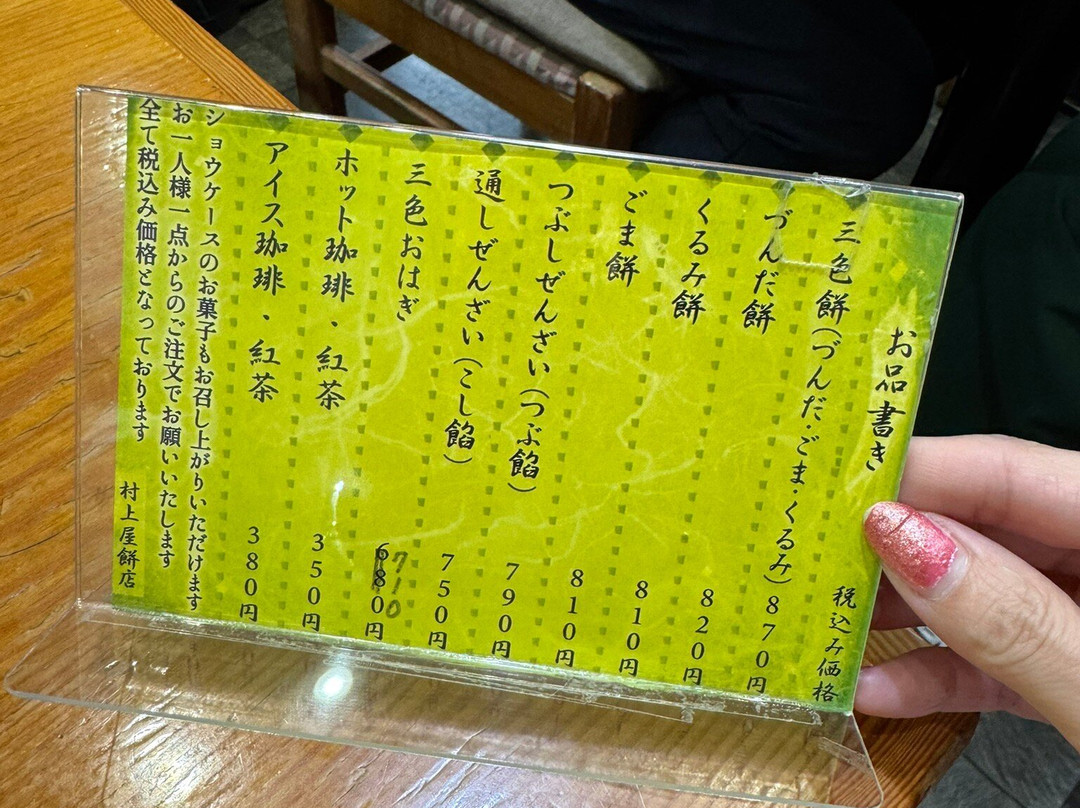 お品書き 税込み価格
三色餅(づんだ・ごま・くるみ) 870円
づんだ餅 820円
くるみ餅 810円
ごま餅 810円
つぶしぜんざい(つぶ餡) 790円
通しぜんざい(こし餡) 750円
三色おはぎ 680円 710
ホット珈琲・紅茶 350円
アイス珈琲・紅茶 380円
ショウケースのお菓子もお召し上がりいただけます
お一人様一点からのご注文でお願いいたします
全て税込み価格となっております
村上屋餅店